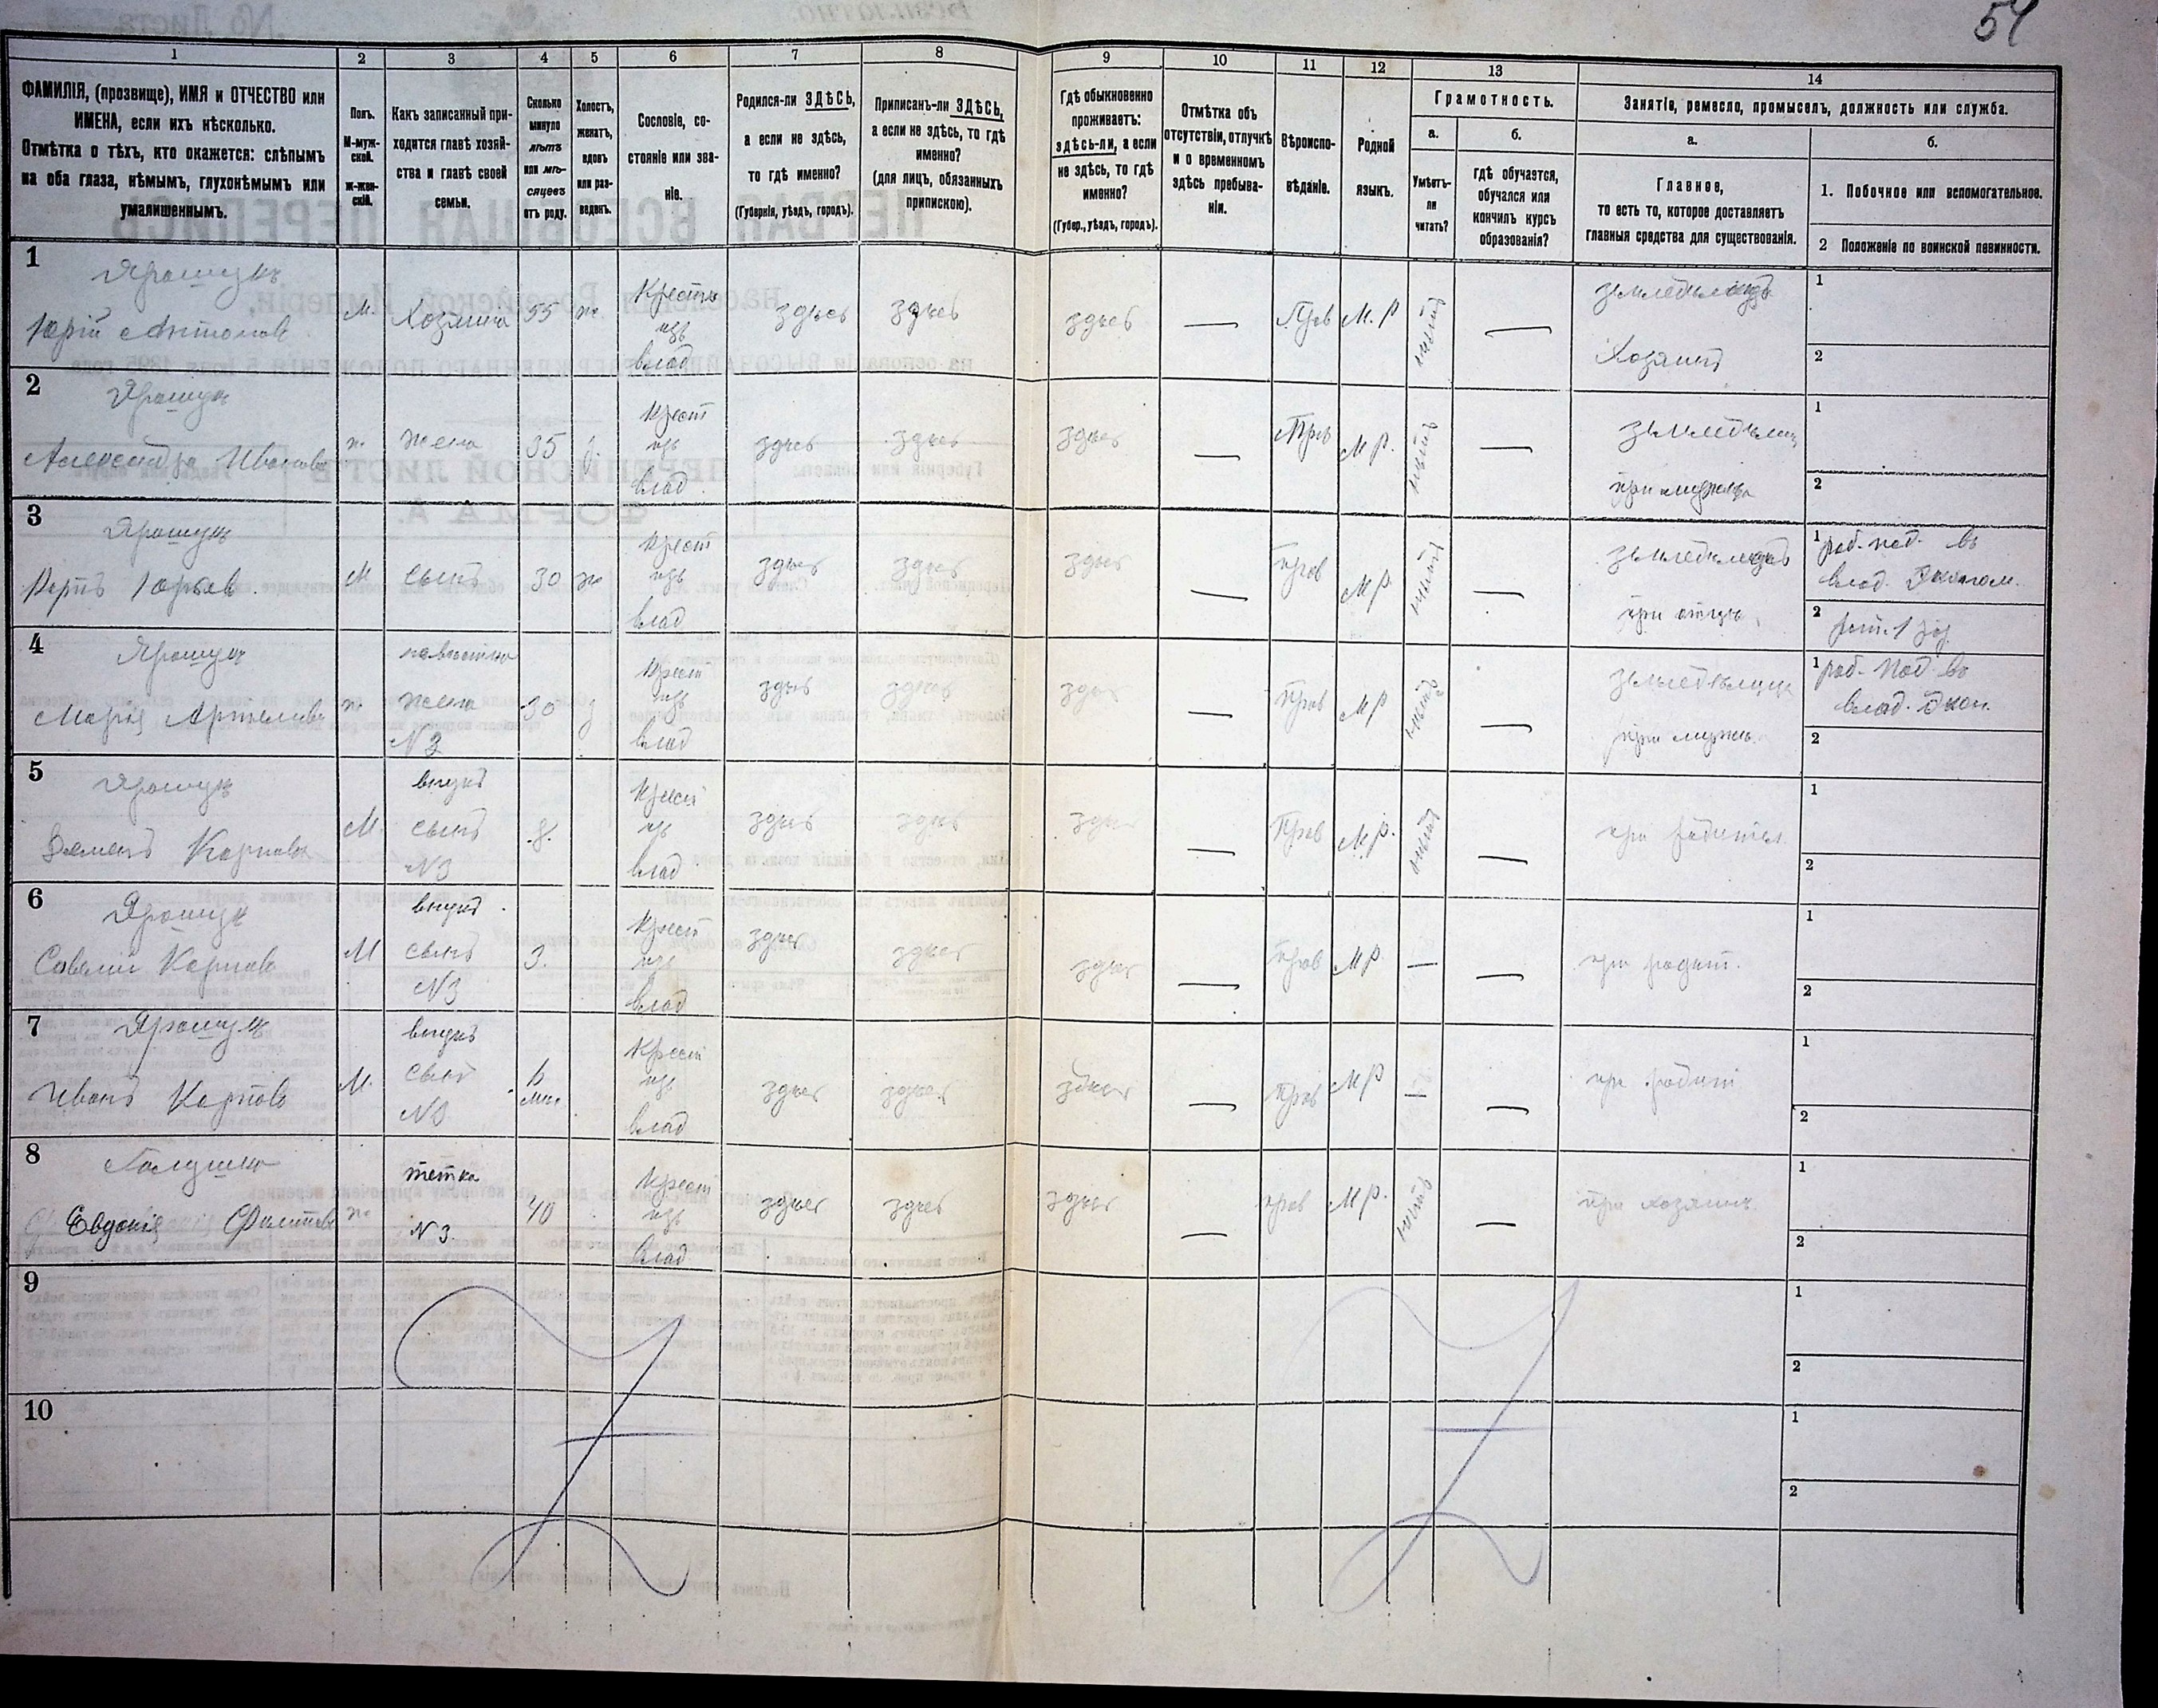 54
1
2
3
4
5
6
7
8
9
10
11
12
13
14
ФАМИЛІЯ, (прозвище), ИМЯ и ОТЧЕСТВО или
ИМЕНА, если ихъ нѣсколько.
Отмѣтка о тѣхъ, кто окажется: слѣпымъ
на оба глаза, нѣмымъ, глухонѣмымъ или
умалишеннымъ.
Полъ.
М-муж-
ской.
ж-жен-
скій.
Какъ записанный при-
ходится главѣ хозяй-
ства и главѣ своей
семьи.
Сколько
минуло
лѣтъ
или мѣ-
сяцевъ
отъ роду.
Холостъ,
женатъ,
вдовъ
или раз-
веденъ.
Сословіе, со-
стояніе или зва-
ніе.
Родился-ли ЗДѢСЬ,
а если не здѣсь,
то гдѣ именно?
(Губернія, уѣздъ, городъ).
Приписанъ-ли ЗДѢСЬ,
а если не здѣсь, то гдѣ
именно?
(для лицъ, обязанныхъ
припискою).
Гдѣ обыкновенно
проживаетъ:
здѣсь-ли, а если
не здѣсь, то гдѣ
именно?
(Губер., уѣздъ, городъ).
Отмѣтка объ
отсутствіи, отлучкѣ
и о временномъ
здѣсь пребыва-
ніи.
Вѣроиспо-
вѣданіе.
Родной
языкъ.
Грамотность.
а.
Умѣетъ-
ли
читать?
б.
гдѣ обучается,
обучался или
кончилъ курсъ
образованія?
Занятіе, ремесло, промыселъ, должность или служба.
а.
Главное,
то есть то, которое доставляетъ
главныя средства для существованія.
б.
1. Побочное или вспомогательное.
2 Положеніе по воинской повинности.
1
Ярощукъ
Юрій Антоновъ
М.
Хозяинъ
55
ж.
Крестн
изъ
влад
здѣсь
здѣсь
здѣсь
—
Прав
М.Р
нѣтъ
—
земледѣлецъ
Хозяинъ
1
2
2
Ярощукъ
Александра Иванова
ж.
жена
35
з.
Крест
изъ
влад.
здѣсь
здѣсь
здѣсь
—
Прав
М.Р.
нѣтъ
—
земледѣлица
при мужѣ
1
2
3
Ярощукъ
Карпъ Юрьев.
М
сынъ
30
ж
Крест
изъ
влад
здѣсь
здѣсь
здѣсь
—
прав
М.Р.
нѣтъ
—
земледѣлецъ
при отцѣ.
1 раб. под. въ
влад. Эконом.
2 рат. 1 раз
4
Ярощукъ
Марія
ж.
невѣстка
жена
N3
30
з
Крест
изъ
влад
здѣсь
здѣсь
здѣсь
—
Прав
М.Р
нѣтъ
—
земледѣлица
при мужѣ.
1 раб. под. въ
влад. Экон.
2
5
Ярощукъ
Семенъ Карповъ
М.
внукъ
сынъ
N3
8.
Крест
изъ
влад
здѣсь
здѣсь
здѣсь
—
Прав
М.Р.
нѣтъ
—
при родител.
1
2
6
Ярощукъ
Савелій Карповъ
М
внукъ
сынъ
N3
3.
Крест
изъ
влад
здѣсь
здѣсь
здѣсь
—
прав
М.Р.
—
—
при родит.
1
2
7
Ярощукъ
Иванъ Карповъ
М.
внукъ
сынъ
N3
6
мѣс.
Крест
изъ
влад
здѣсь
здѣсь
здѣсь
—
Прав
М.Р
—
—
при родит
1
2
8
Евдокія
ж.
тетка
N3.
40
Крест
изъ
влад
здѣсь
здѣсь
здѣсь
—
прав
М.Р.
нѣтъ
—
при хозяинѣ.
1
2
9
1
2
10
1
2